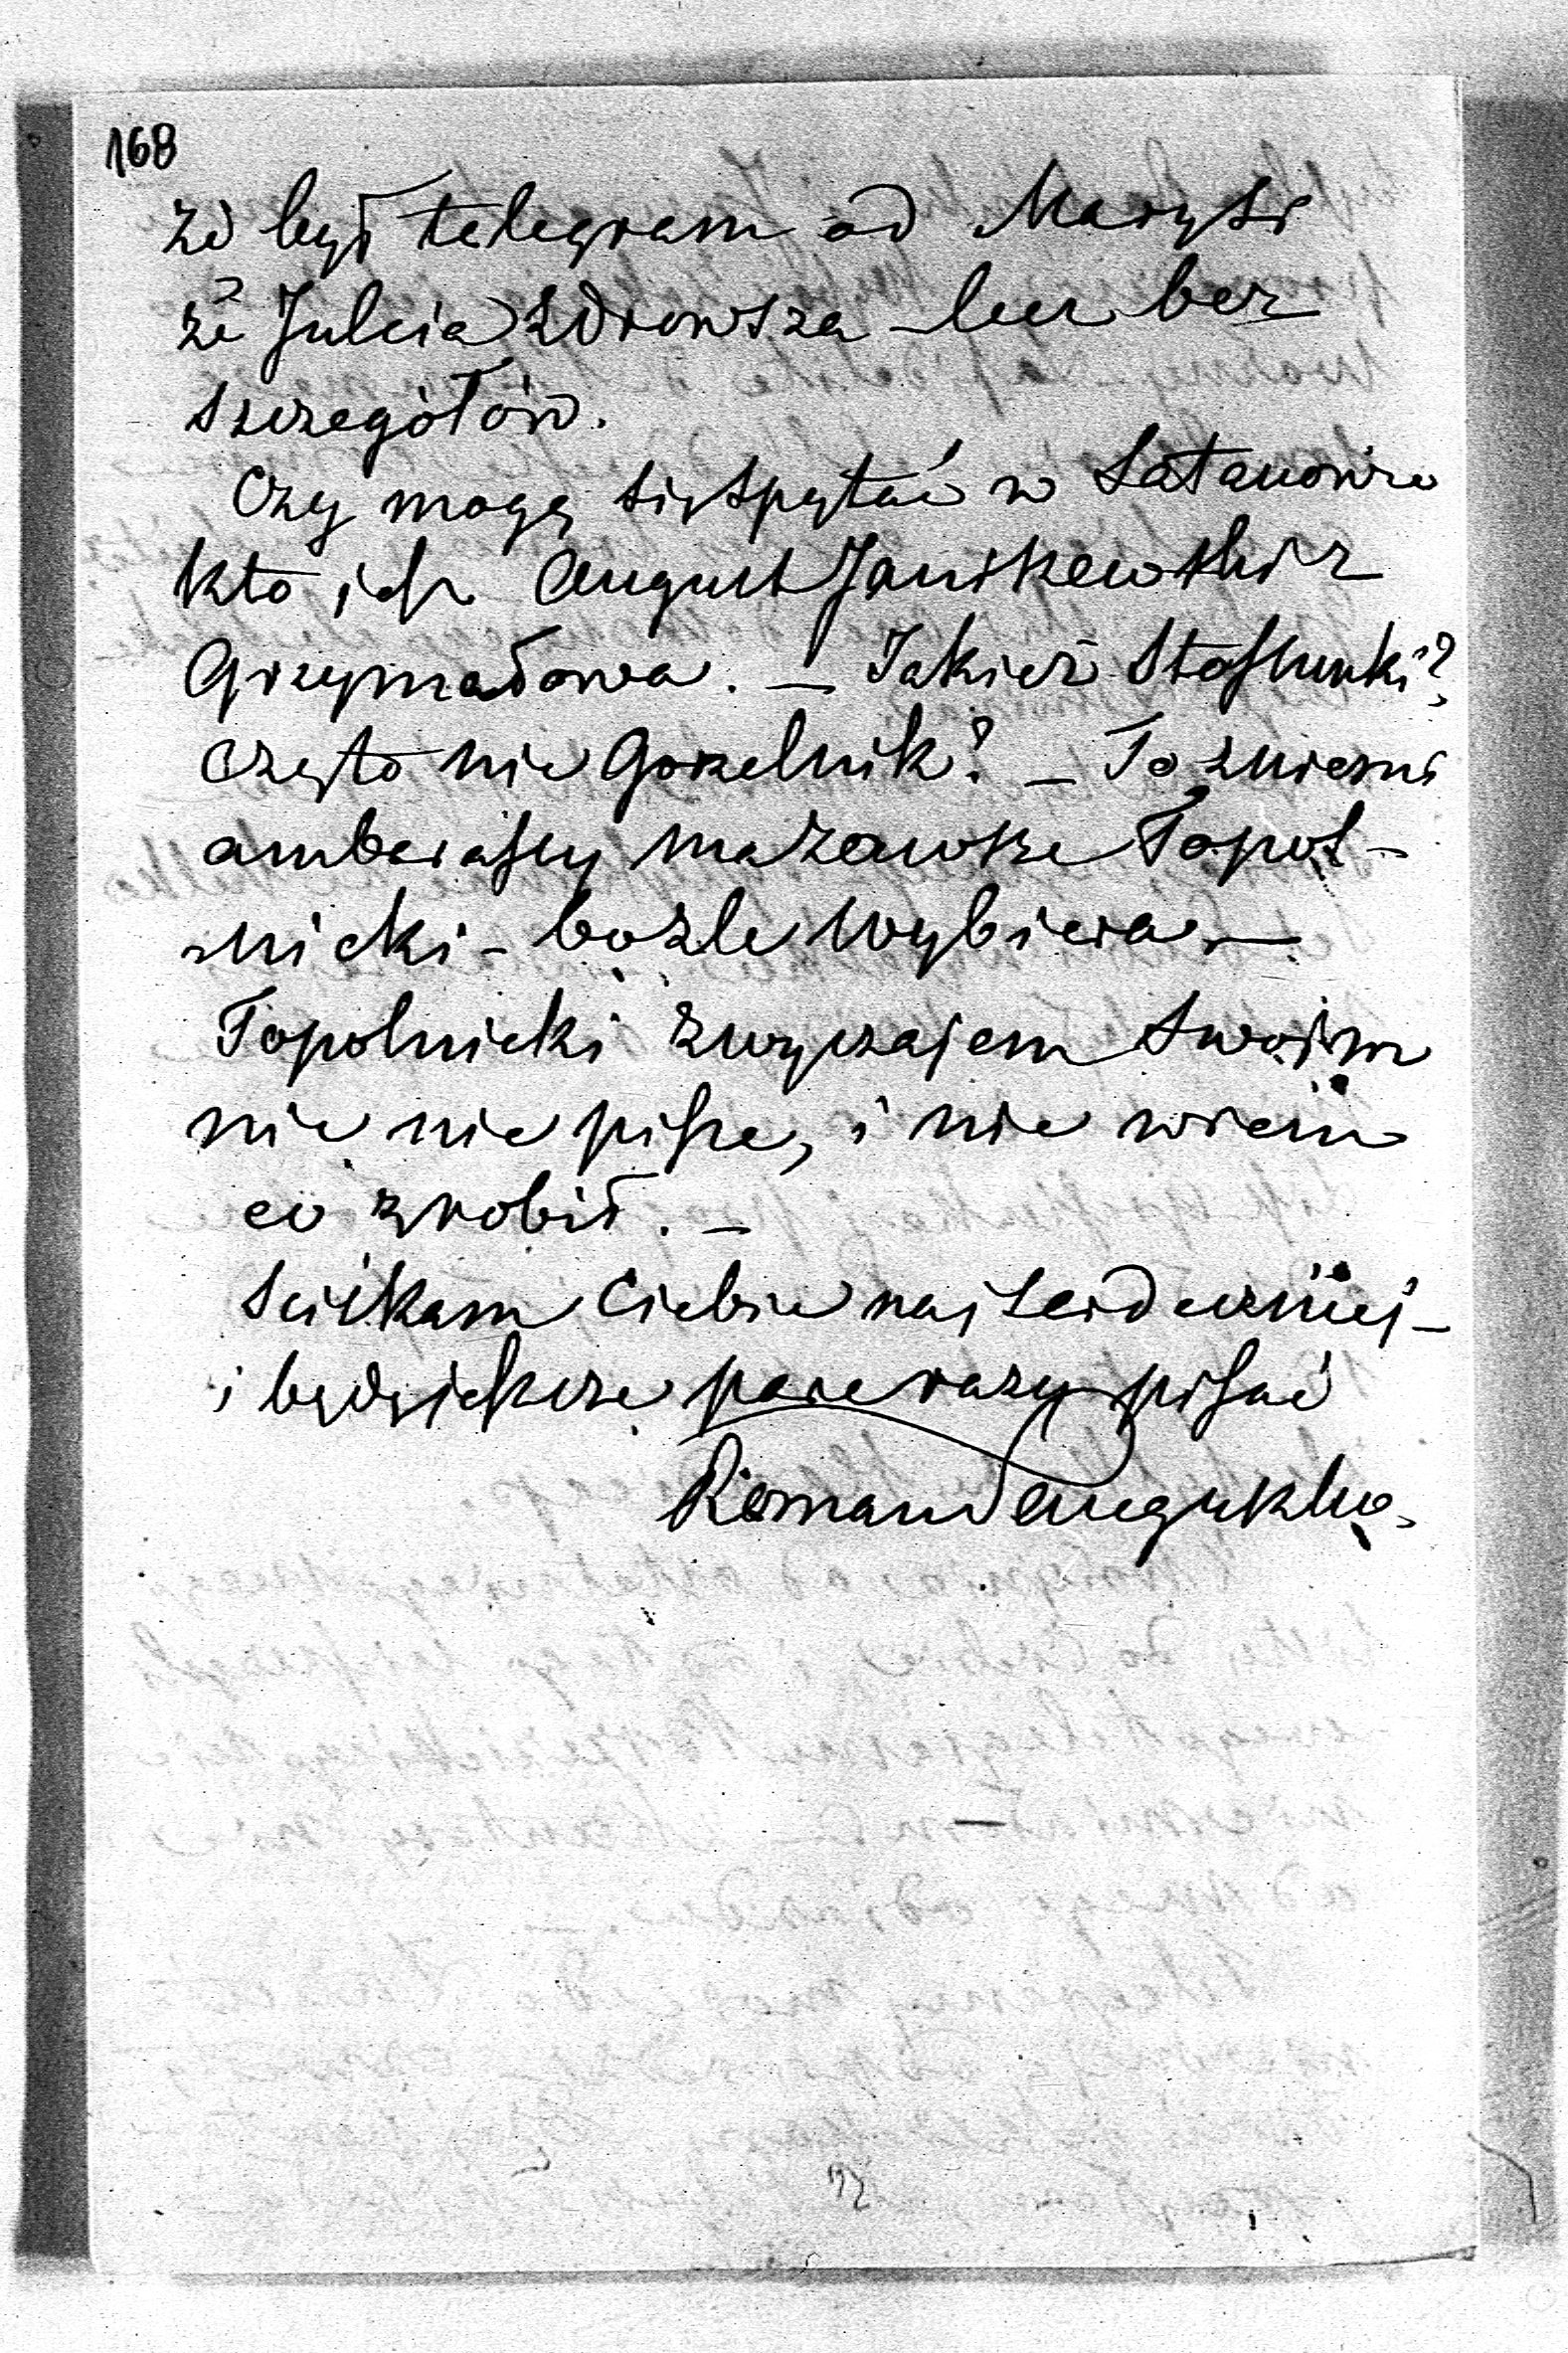 168
że był telegram od Marysi
że Julcia zdrowsza – lecz bez
szczegółów.
Czy mogą się spytać w Satanowie
kto jest August Janiszewski z
Grzymałowa. – Jakież stosunki?
czy to nie Gorzelnik? – To z niemi
ambarasy ma zawsze Topol-
nicki – bo źle wybiera –
Topolnicki zwyczajem swoim
nic nie pisze, i nie wiem
co zrobił. –
Sciskam Ciebie najserdeczniej –
i będę jeszcze parę razy pisać
Roman Sanguszko.